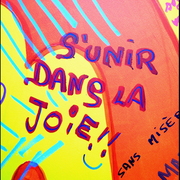 S'UNIR
DANS LA
JOIE!!
SANS MISÈR